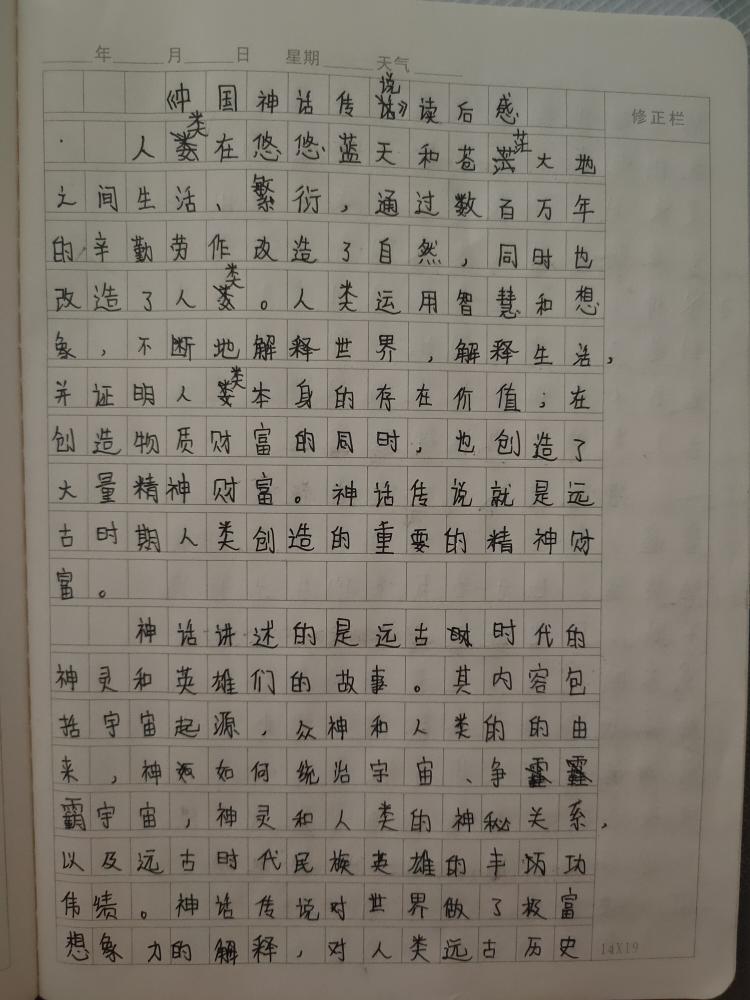 年 月 日 星期 天气
《中国神话传说》读后感
修正栏
人类在悠悠蓝天和苍茫大地
之间生活、繁衍，通过数百万年
的辛勤劳作改造了自然，同时也
改造了人类。人类运用智慧和想
象，不断地解释世界，解释生活，
并证明人类本身的存在价值；在
创造物质财富的同时，也创造了
大量精神财富。神话传说就是远
古时期人类创造的重要的精神财
富。
神话讲述的是远古时代的
神灵和英雄们的故事。其内容包
括宇宙起源，众神和人类的的由
来，神如何统治宇宙、争
霸宇宙，神灵和人类的神秘关系，
以及远古时代民族英雄的丰功
伟绩。神话传说对世界做了极富
想象力的解释，对人类远古历史
14X19